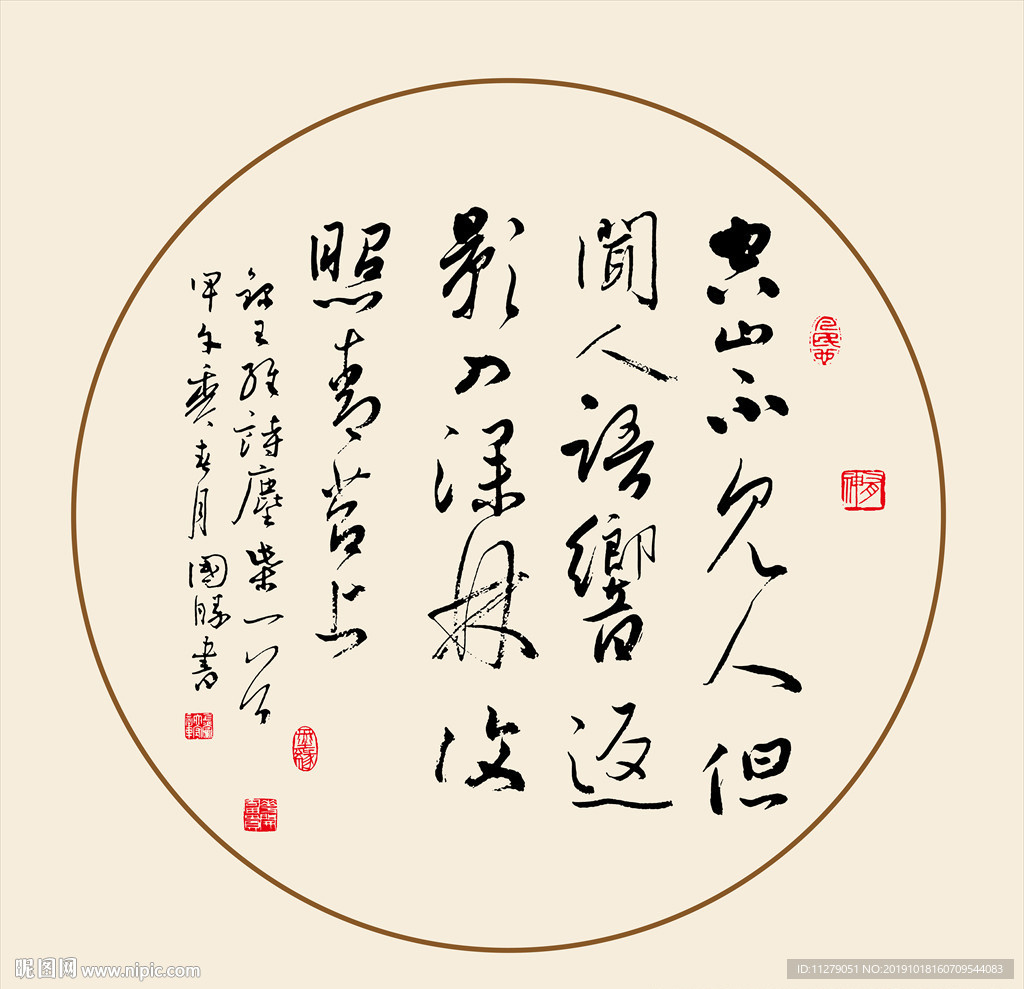 空山不見人但
聞人語響返
影入深林復
照青苔上
錄王維詩鹿柴一首
甲午春月國勝書
昵图网 www.nipic.com
ID:11279051 NO:20191018160709544083